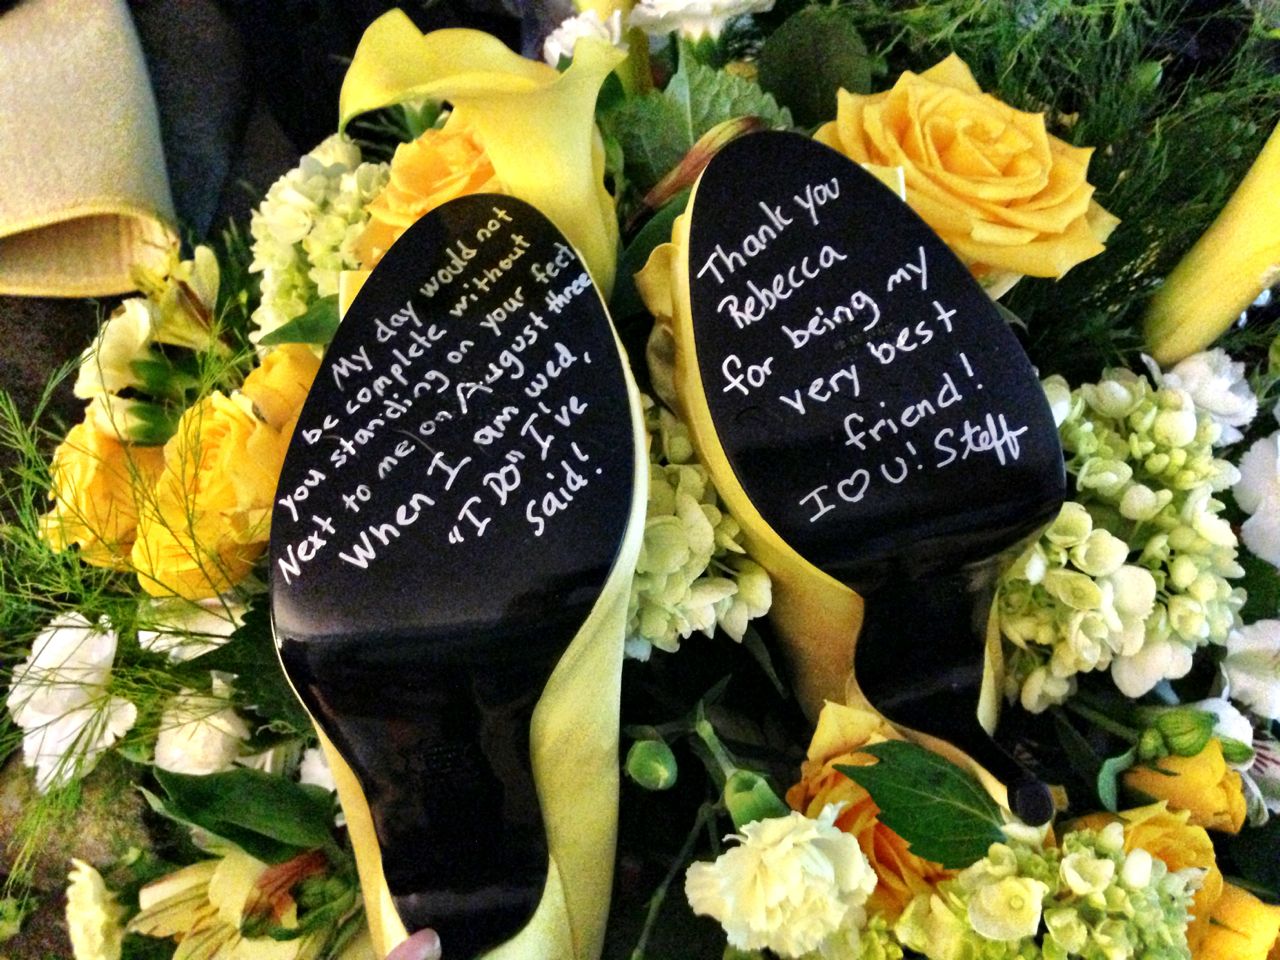 My day would not
be complete without
you standing on your feet
Next to me on August three
When I am wed,
"I DO" I've
said!
Thank you
Rebecca
for being my
very best
friend!
I ♡ U! Steff